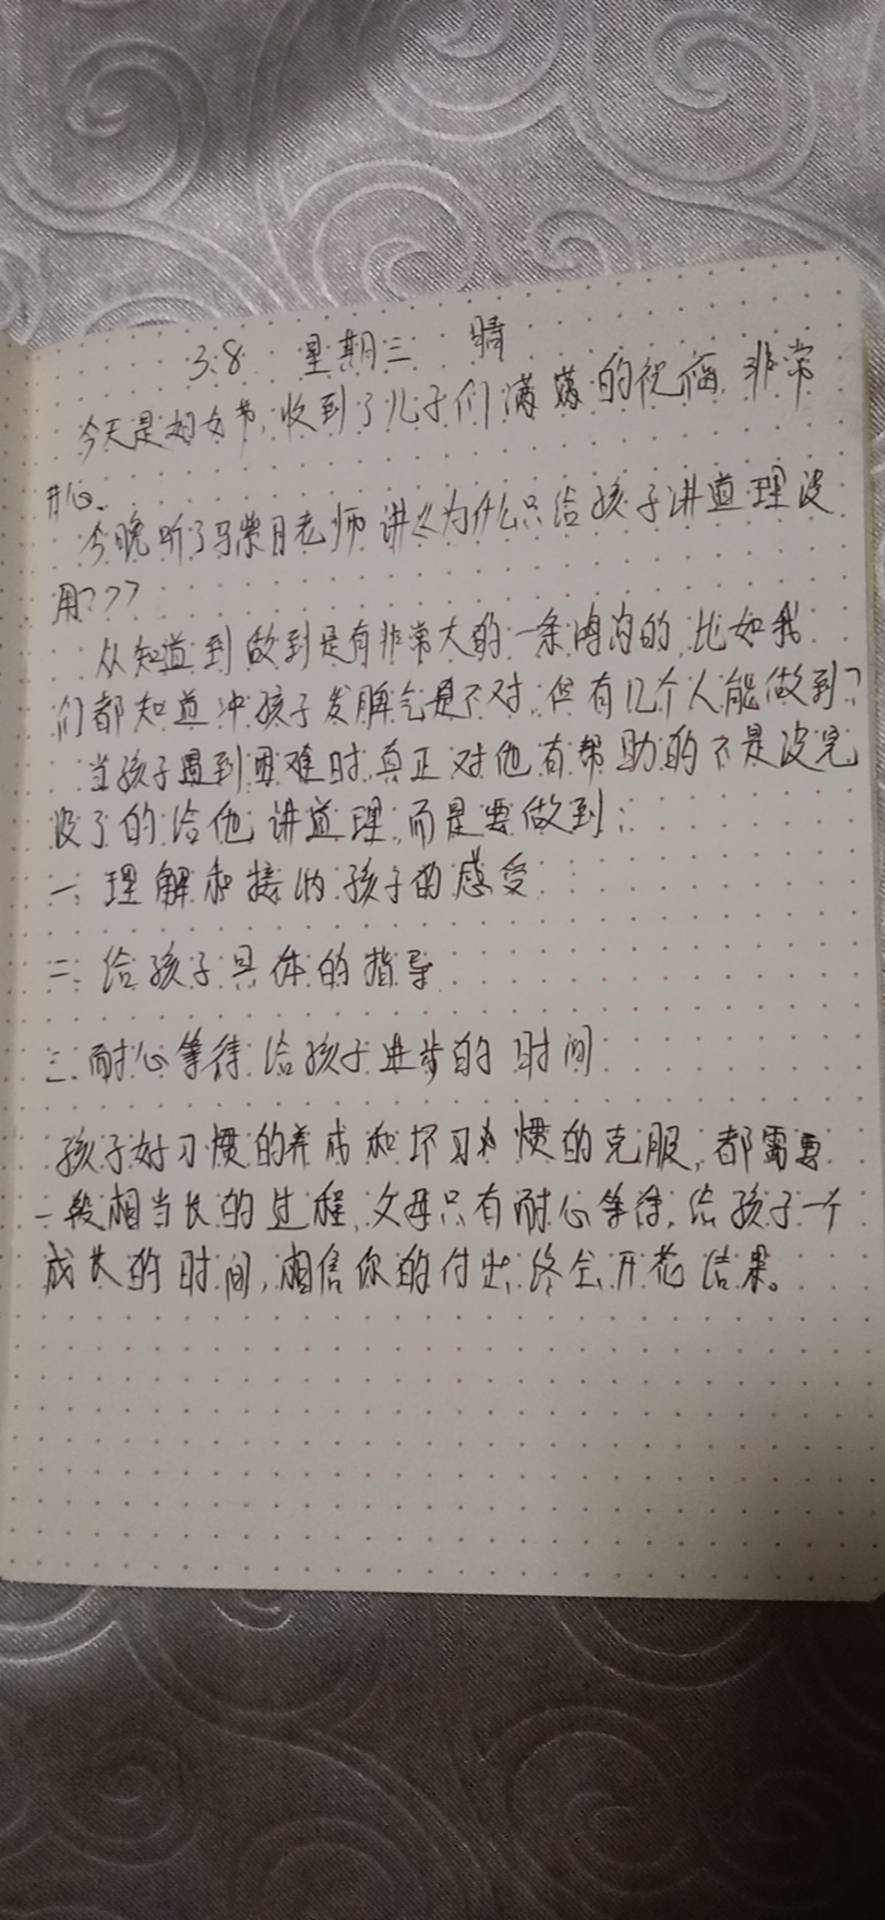 3.8 星期三 晴
今天是妇女节,收到了儿子们满满的祝福,非常
开心.
今晚听了马荣月老师讲《为什么只给孩子讲道理没
用???
从知道到做到是有非常大的一条鸿沟的,比如我
们都知道冲孩子发脾气是不对,但有几个人能做到?
当孩子遇到困难时,真正对他有帮助的不是没完
没了的给他讲道理,而是要做到:
一、理解和接纳孩子的感受
二、给孩子具体的指导
三、耐心等待给孩子进步的时间
孩子好习惯的养成和坏习惯的克服,都需要
一段相当长的过程,父母只有耐心等待,给孩子一个
成长的时间,相信你的付出终会开花结果。